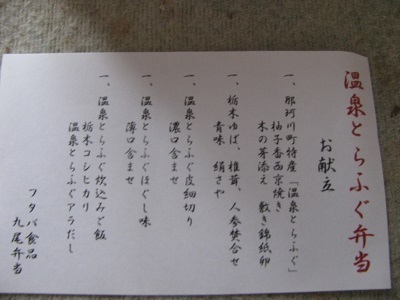 温泉とらふぐ弁当
お献立
一、那珂川町特産「温泉とらふぐ」
柚子香西京焼き
木の芽添え 敷き錦紙卵
一、栃木ゆば、椎茸、人参焚合せ
青味 絹さや
一、温泉とらふぐ皮細切り
濃口含ませ
一、温泉とらふぐほぐし味
薄口含ませ
一、温泉とらふぐ炊込みご飯
栃木コシヒカリ
温泉とらふぐアラだし
フタバ食品
九尾弁当